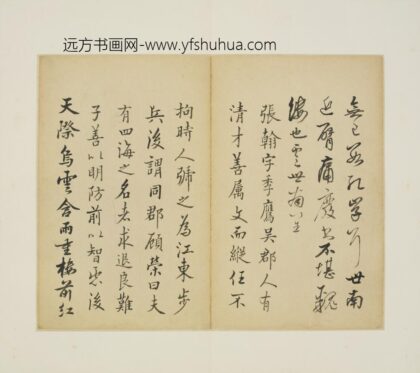 远方书画网-www.yfshuhua.com
無已數紙學耳世南
近臂痛廢書不堪覼
縷也虞世南呈
張翰字季鷹吳郡人有
清才善属文而縱任不
拘時人號之為江東步
兵後謂同郡顧榮曰夫
有四海之名者求退良難
子善以明防前以智慮後
天際烏雲含雨重樓前紅